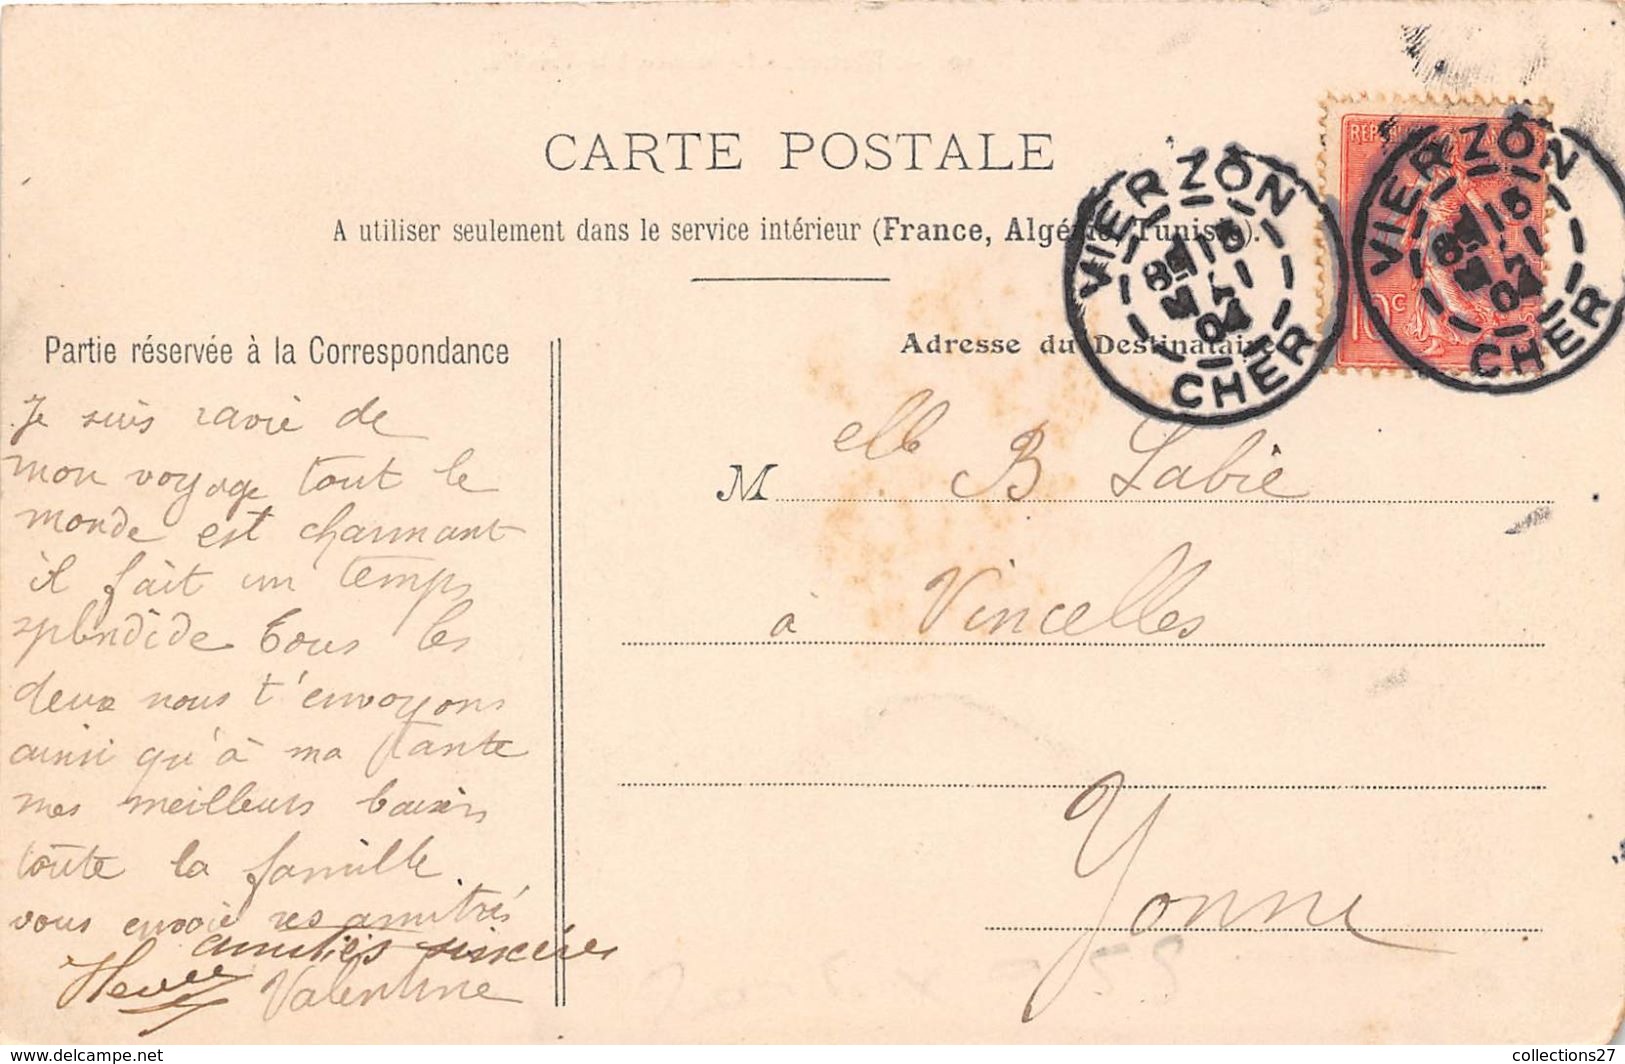 CARTE POSTALE
A utiliser seulement dans le service intérieur (France, Algérie, Tunisie).
VIERZON
CHER
VIERZON
CHER
10c
Partie réservée à la Correspondance
Adresse du Destinataire
Je suis ravie de
mon voyage tout le
monde est charmant
il fait un temps
splendide tous les
deux nous t'envoyons
ainsi qu'à ma tante
mes meilleurs baisers
toute la famille
vous envoie ses amitiés
amitiés sincères
Valentine
Melle B Labie
à Vincelles
Yonne
collections27